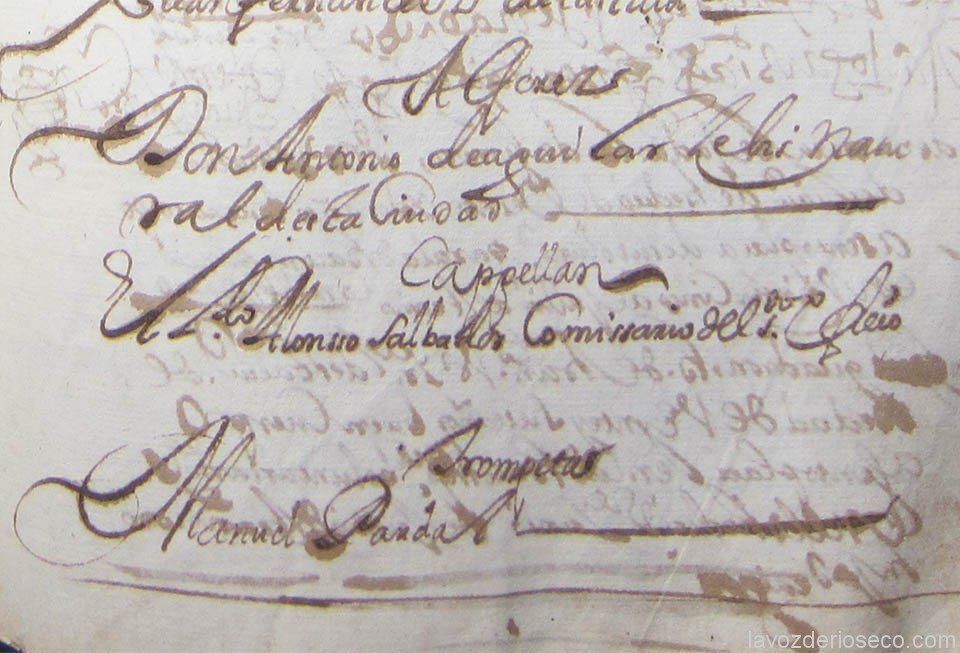 Juan fernandez
Alferez
Don Antonio de aguilar Natu
ral desta Ciudad
Cappellan
El L.do Alonso Salbador Comissario del s.to offi.o
Trompetas
Manuel Pardal
lavozderioseco.com